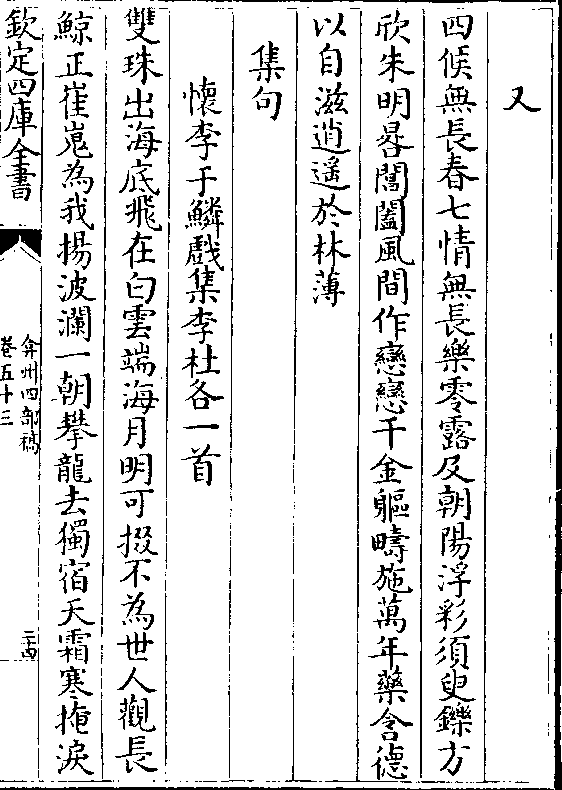 又
四候無長春七情無長樂零露及朝陽浮彩須臾鑠方
欣朱明晷閶闔風間作戀戀千金軀疇施萬年藥含德
以自滋逍遥於林薄
集句
懷李于鱗戲集李杜各一首
雙珠出海底飛在白雲端海月明可掇不為世人觀長
鯨正崔嵬為我揚波瀾一朝攀龍去獨宿天霜寒掩淚
欽定四庫全書
弇州四部稿
卷五十三
二四